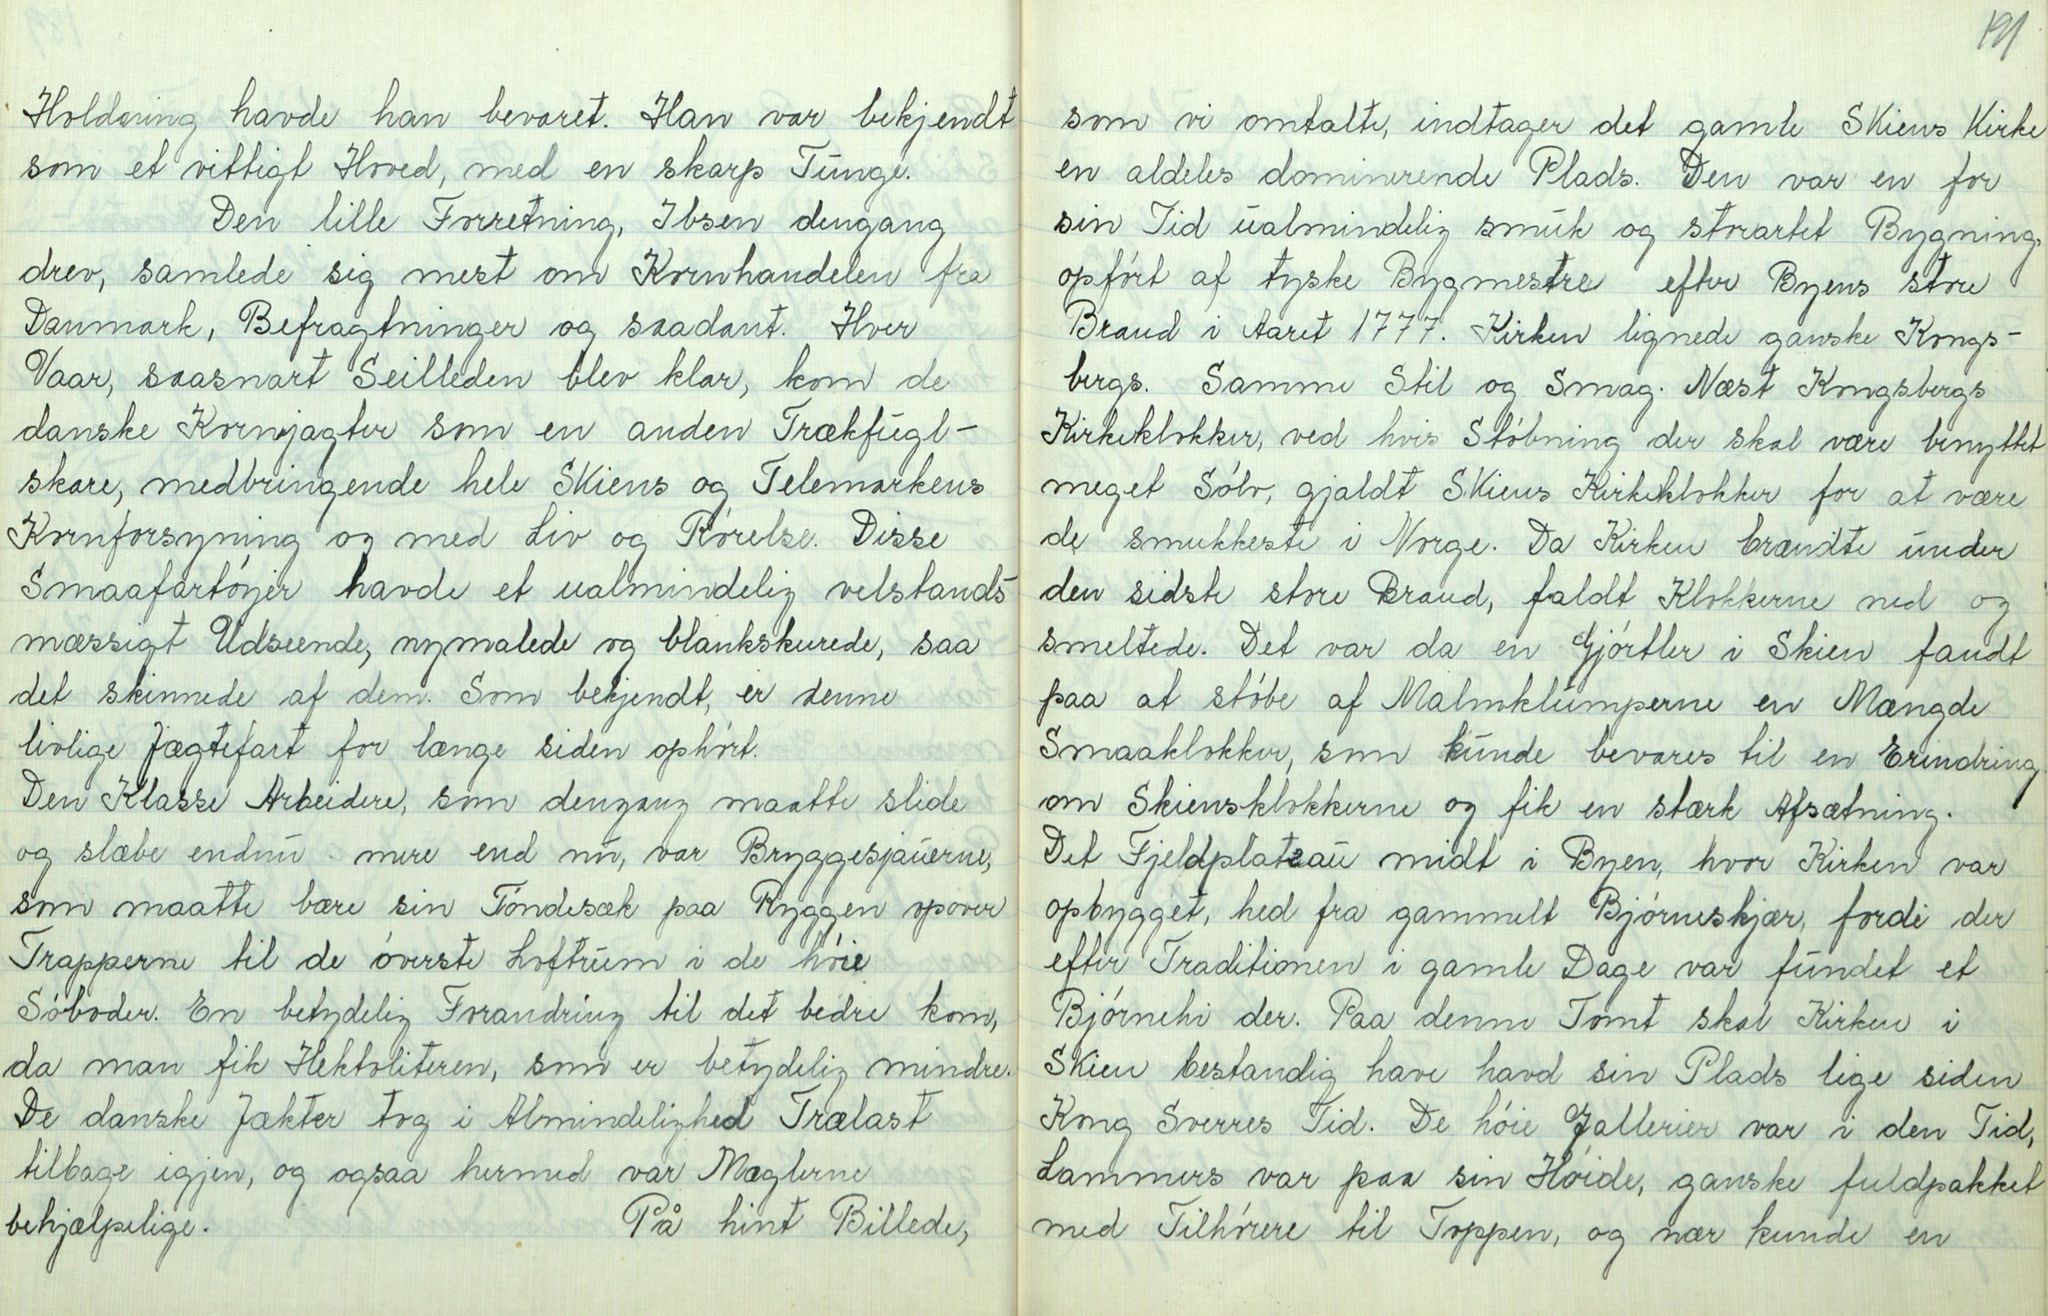 Holdning havde han bevaret. Han var bekjendt
som et vittigt Hoved, med en skarp Tunge.
Den lille Forretning, Ibsen dengang
drev, samlede sig mest om Kornhandelen fra
Danmark, Befragtninger og saadant. Hver
Vaar, saasnart Seilleden blev klar, kom de
danske Kornjagter som en anden Trækfugl-
skare, medbringende hele Skiens og Telemarkens
Kornforsyning og med Liv og Rørelse. Disse
Smaafartøyer havde et ualmindelig velstands-
mæssigt Udseende, nymalede og blankskurede, saa
det skinnede af dem. Som bekjendt, er denne
livlige Jægtefart for længe siden ophørt.
Den Klasse Arbeidere, som dengang maatte slide
og slæbe endnu mere end nu, var Bryggesjauerne,
som maatte bære sin Tøndesæk paa Ryggen opover
Trapperne til de øverste Loftrum i de høie
Søboder. En betydelig Forandring til det bedre kom,
da man fik Hektoliteren, som er betydelig mindre.
De danske Jækter tog i Almindelighed Trælast
tilbage igjen, og ogsaa hermed var Mæglerne
behjælpelige. På hint Billede,
191
som vi omtalte, indtager det gamle Skiens Kirke
en aldeles dominerende Plads. Den var en for
sin Tid ualmindelig smuk og storartet Bygning,
opført af tyske Bygmestre efter Byens store
Brand i Aaret 1777. Kirken lignede ganske Kongs-
bergs. Samme Stil og Smag. Næst Kongsbergs
Kirkeklokker, ved hvis Støbning der skal være benyttet
meget Sølv, gjaldt Skiens Kirkeklokker for at være
de smukkeste i Norge. Da Kirken brændte under
den sidste store Brand, faldt Klokkerne ned og
smeltede. Det var da en Gjørtler i Skien fandt
paa at støbe af Malmklumperne en Mængde
Smaaklokker, som kunde bevares til en Erindring
om Skiensklokkerne og fik en stærk Afsætning.
Det Fjeldplateau midt i Byen, hvor Kirken var
opbygget, hed fra gammelt Bjørneskjær, fordi der
efter Traditionen i gamle Dage var fundet et
Bjørnehi der. Paa denne Tomt skal Kirken i
Skien bestandig have havd sin Plads lige siden
Kong Sverres Tid. De høie Gallerier var i den Tid,
Lammers var paa sin Høide, ganske fuldpakket
med Tilhørere til Toppen, og nær kunde en